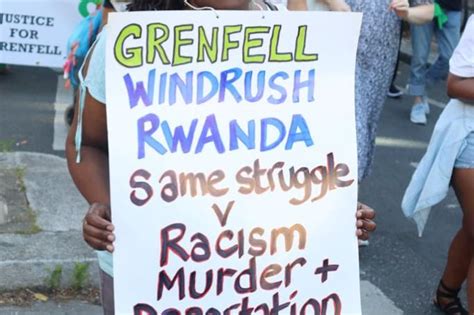 JUSTICE
FOR
GRENFELL
GRENFELL
WINDRUSH
RWANDA
Same struggle
v
Racism
Murder +
Deportation